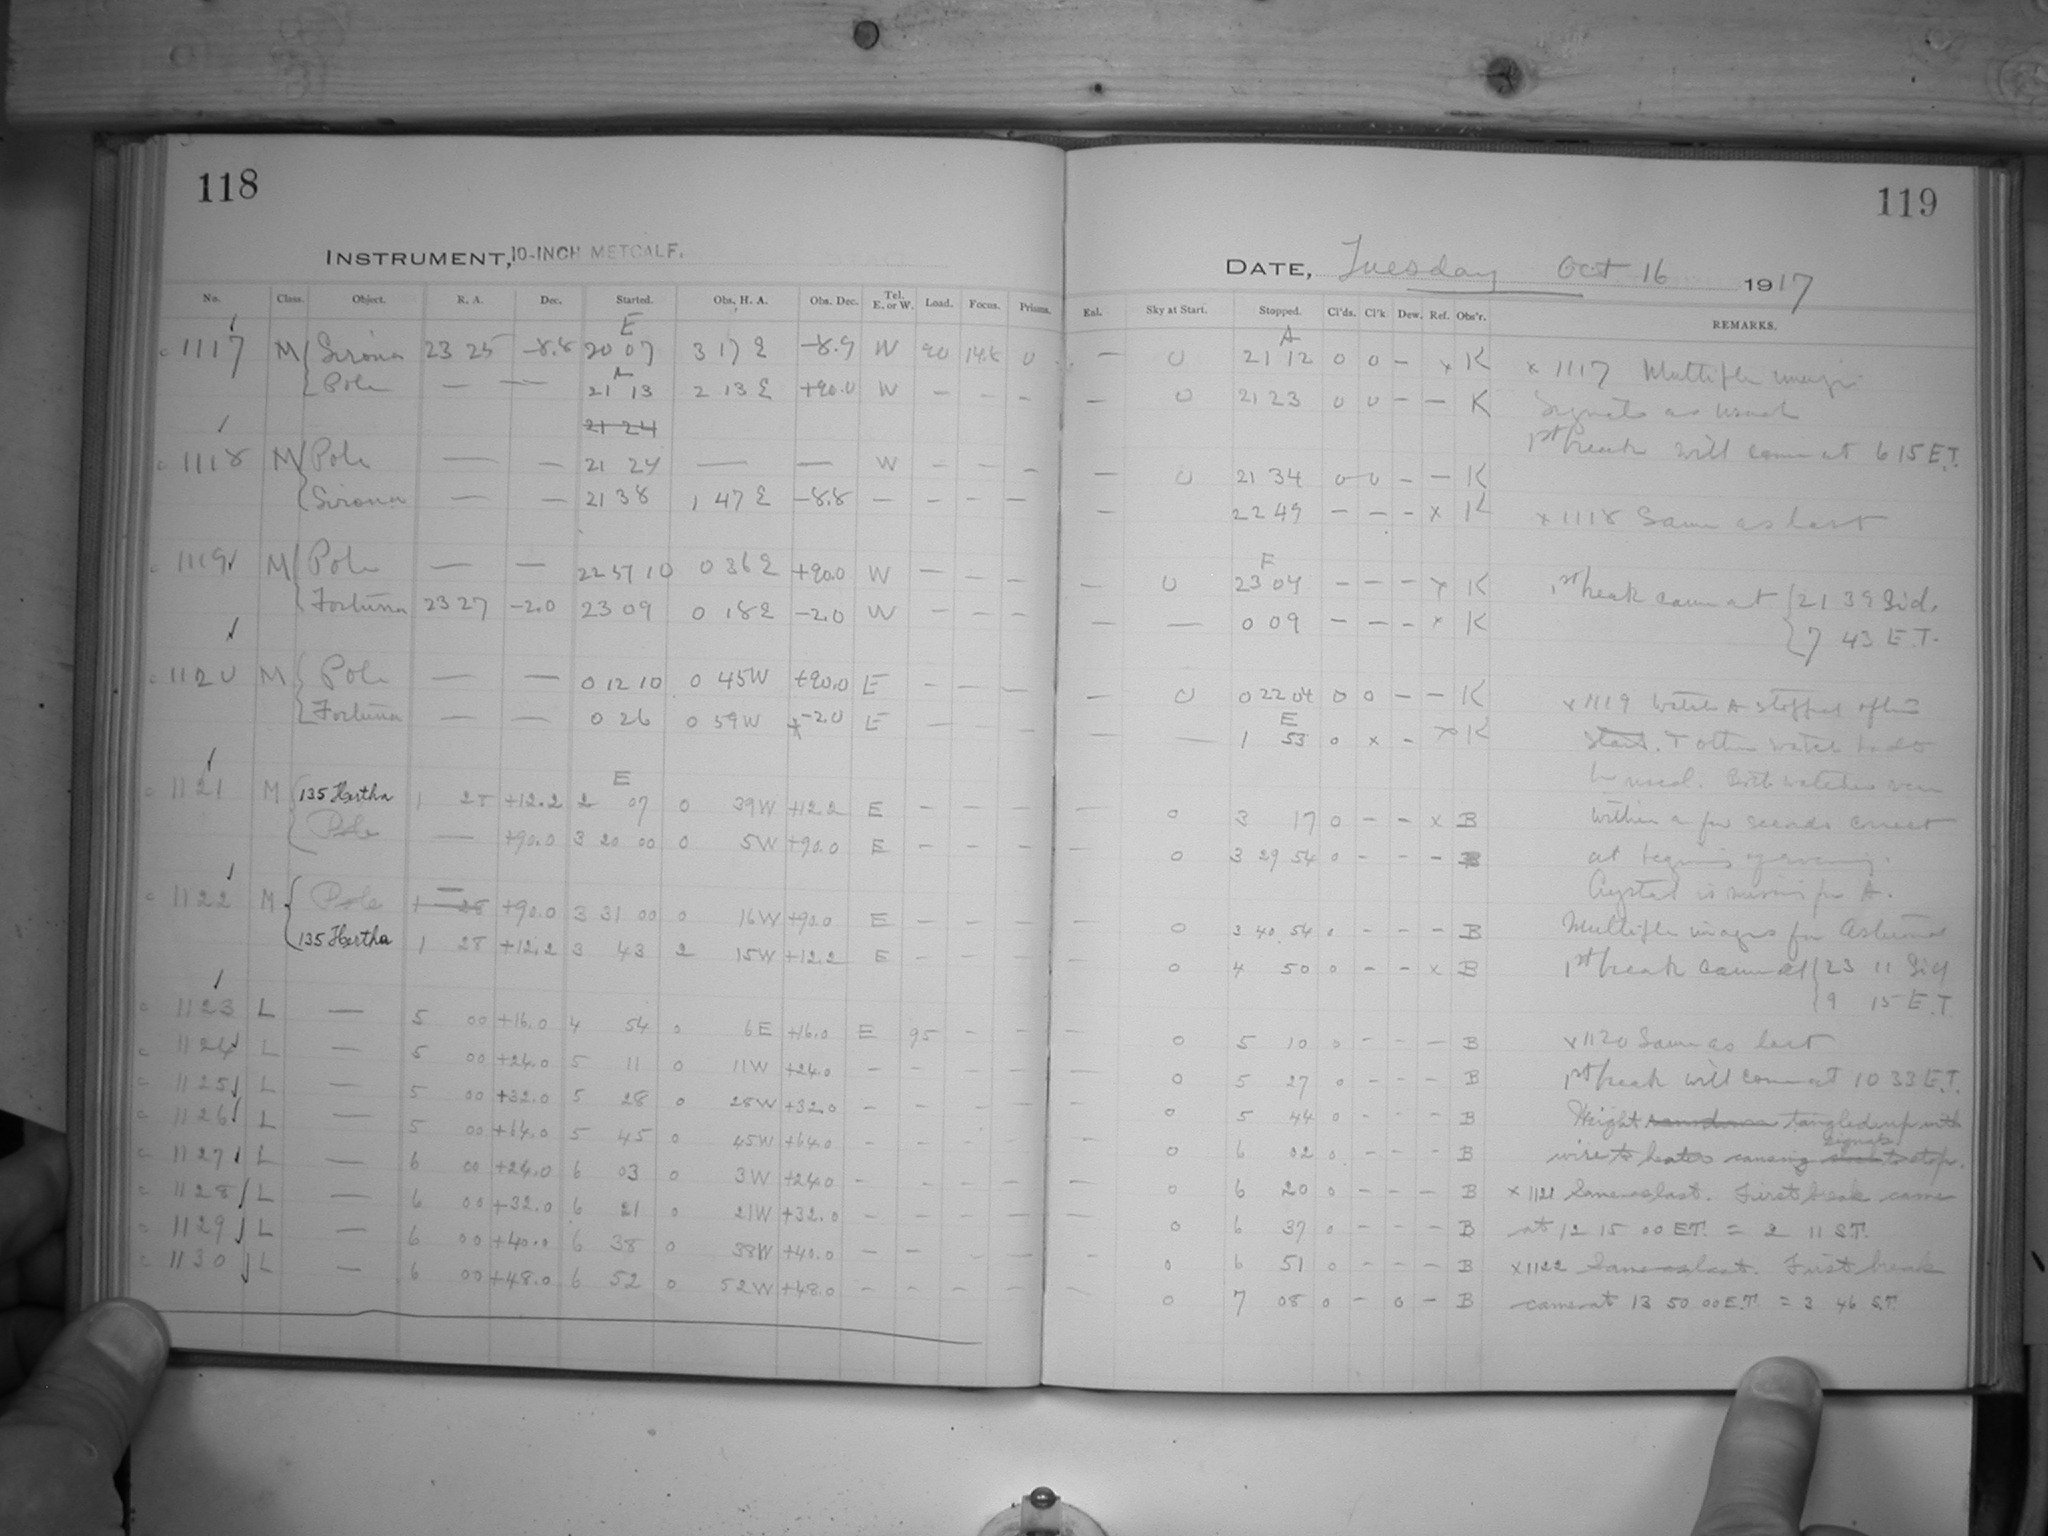 118
INSTRUMENT, 10-INCH METCALF.
No. Class. Object. R. A. Dec. Started. Obs. H. A. Obs. Dec. Tel. E. or W. Load. Focus. Prisms.
E
1117 M Sirona 23 25 -8.8 20 07 3 17 E -8.9 W 90 14.8 0
A
Pole — — 21 13 2 13 E +90.0 W - - -
21 24
1118 M Pole — — 21 24 — — W - - -
Sirona — — 21 38 1 47 E -8.8 - - - -
1119 M Pole — — 22 57 10 0 36 E +90.0 W - - -
Fortuna 23 27 -2.0 23 09 0 18 E -2.0 W - - -
1120 M Pole — — 0 12 10 0 45 W +90.0 E - - -
Fortuna — — 0 26 0 59 W -2.0 E - -
E
1121 M 135 Hertha 1 28 +12.2 2 07 0 39 W +12.2 E - - -
Pole — +90.0 3 20 00 0 5 W +90.0 E - - -
1122 M Pole 1 28 +90.0 3 31 00 0 16 W +90.0 E - - -
135 Hertha 1 28 +12.2 3 43 2 15 W +12.2 E - - -
1123 L — 5 00 +16.0 4 54 0 6 E +16.0 E 95 - -
1124 L — 5 00 +24.0 5 11 0 11 W +24.0 - - - -
1125 L — 5 00 +32.0 5 28 0 28 W +32.0 - - - -
1126 L — 5 00 +64.0 5 45 0 45 W +64.0 - - - -
1127 L — 6 00 +24.0 6 03 0 3 W +24.0 - - - -
1128 L — 6 00 +32.0 6 21 0 21 W +32.0 - - - -
1129 L — 6 00 +40.0 6 38 0 38 W +40.0 - - - -
1130 L — 6 00 +48.0 6 52 0 52 W +48.0 - - - -
119
DATE, Tuesday Oct 16 1917
Eal. Sky at Start. Stopped. Cl'ds. Cl'k Dew. Ref. Obs'r. REMARKS.
A
— 0 21 12 0 0 - x K
— 0 21 23 0 0 - - K
— 0 21 34 0 0 - - K
— 22 49 - - - x K
— 0 23 04 - - - x K
— — 0 09 - - - x K
— 0 0 22 04 0 0 - - K
E
— — 1 53 0 x - x K
0 3 17 0 - - x B
0 3 29 54 0 - - - B
0 3 40 54 0 - - - B
0 4 50 0 - - x B
0 5 10 0 - - - B
0 5 27 0 - - - B
0 5 44 0 - - - B
0 6 02 0 - - - B
0 6 20 0 - - - B
0 6 37 0 - - - B
0 6 51 0 - - - B
0 7 08 0 - 0 - B
x 1117 Multiple images
Signals as usual
1st break will come at 6 15 E.T.
x 1118 Same as last
1st break came at 21 39 Sid.
7 43 E.T.
x 1119 Watch A stopped after
start. + other watch had to
be used. Both watches were
within a few seconds correct
at of evening.
Crystal is missing for A.
Multiple images for Asteroid
1st break came at 23 11 Sid
9 15 E.T
x 1120 Same as last
1st break will come at 10 33 E.T.
Weight tangled up with
signals
wire to heater causing to stop.
x 1121 Same as last. First break came
at 12 15 00 E.T. = 2 11 S.T.
x 1122 Same as last. First break
came at 13 50 00 E.T. = 3 46 S.T.